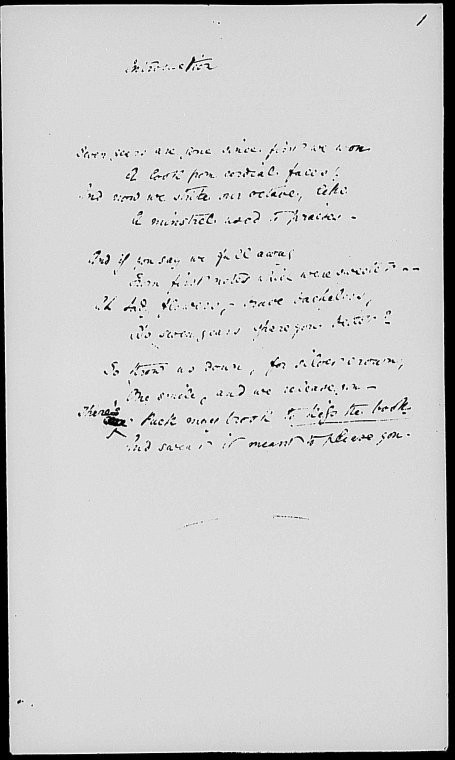 1
Introduction
Seven years are gone since first we won
A look from cordial faces;
And now we strike our octave, like
A minstrel used to praises –
And if you say we fall away
From first notes which were sweeter –
Ah lady, flowers, – grave bachelors,
seven years
So throw us down, for silver crown,
One smile, and we release you –
There's Puck may brook to the book
And swear it meant to please you.